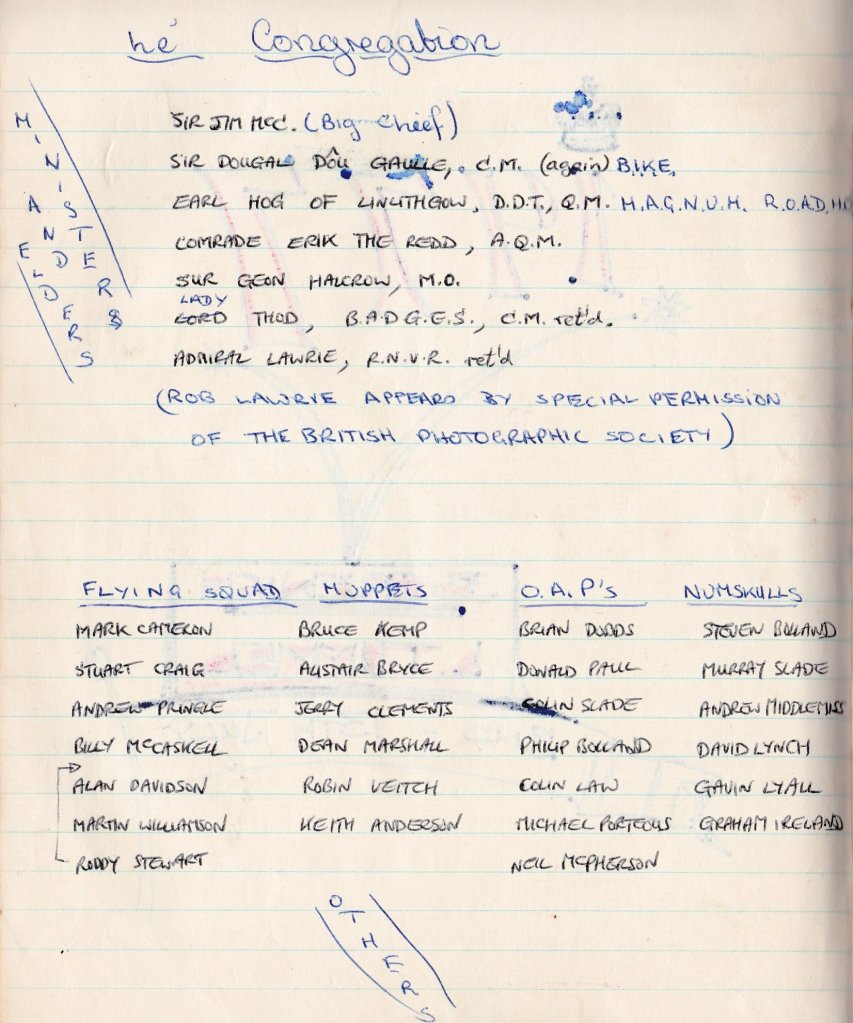 he' Congregation
MINISTERS &
AND ELDERS
SIR JIM MCC. (Big Chief)
SIR DOUGAL DÔU GAULLE, C.M. (again) B.I.K.E.
EARL HOG OF LINLITHGOW, D.D.T., Q.M. M.A.G.N.U.M. R.O.A.D.
COMRADE ERIK THE REDD, A.Q.M.
SUR GEON HALCROW, M.O.
LADY
LORD THOD, B.A.D.G.E.S., C.M. ret'd.
ADMIRAL LAWRIE, R.N.V.R. ret'd
(ROB LAWRIE APPEARS BY SPECIAL PERMISSION
OF THE BRITISH PHOTOGRAPHIC SOCIETY)
FLYING SQUAD MUPPETS O.A.P'S NUMSKULLS
MARK CAMERON BRUCE KEMP BRIAN DODDS STEVEN BOLLAND
STUART CRAIG ALISTAIR BRYCE DONALD PAUL MURRAY SLADE
ANDREW PRINGLE JERRY CLEMENTS COLIN SLADE ANDREW MIDDLEMISS
BILLY MCCASKELL DEAN MARSHALL PHILIP BOLLAND DAVID LYNCH
ALAN DAVIDSON ROBIN VEITCH COLIN LAW GAVIN LYALL
MARTIN WILLIAMSON KEITH ANDERSON MICHAEL PORTEOUS GRAHAM IRELAND
RODDY STEWART NEIL MCPHERSON
OTHERS